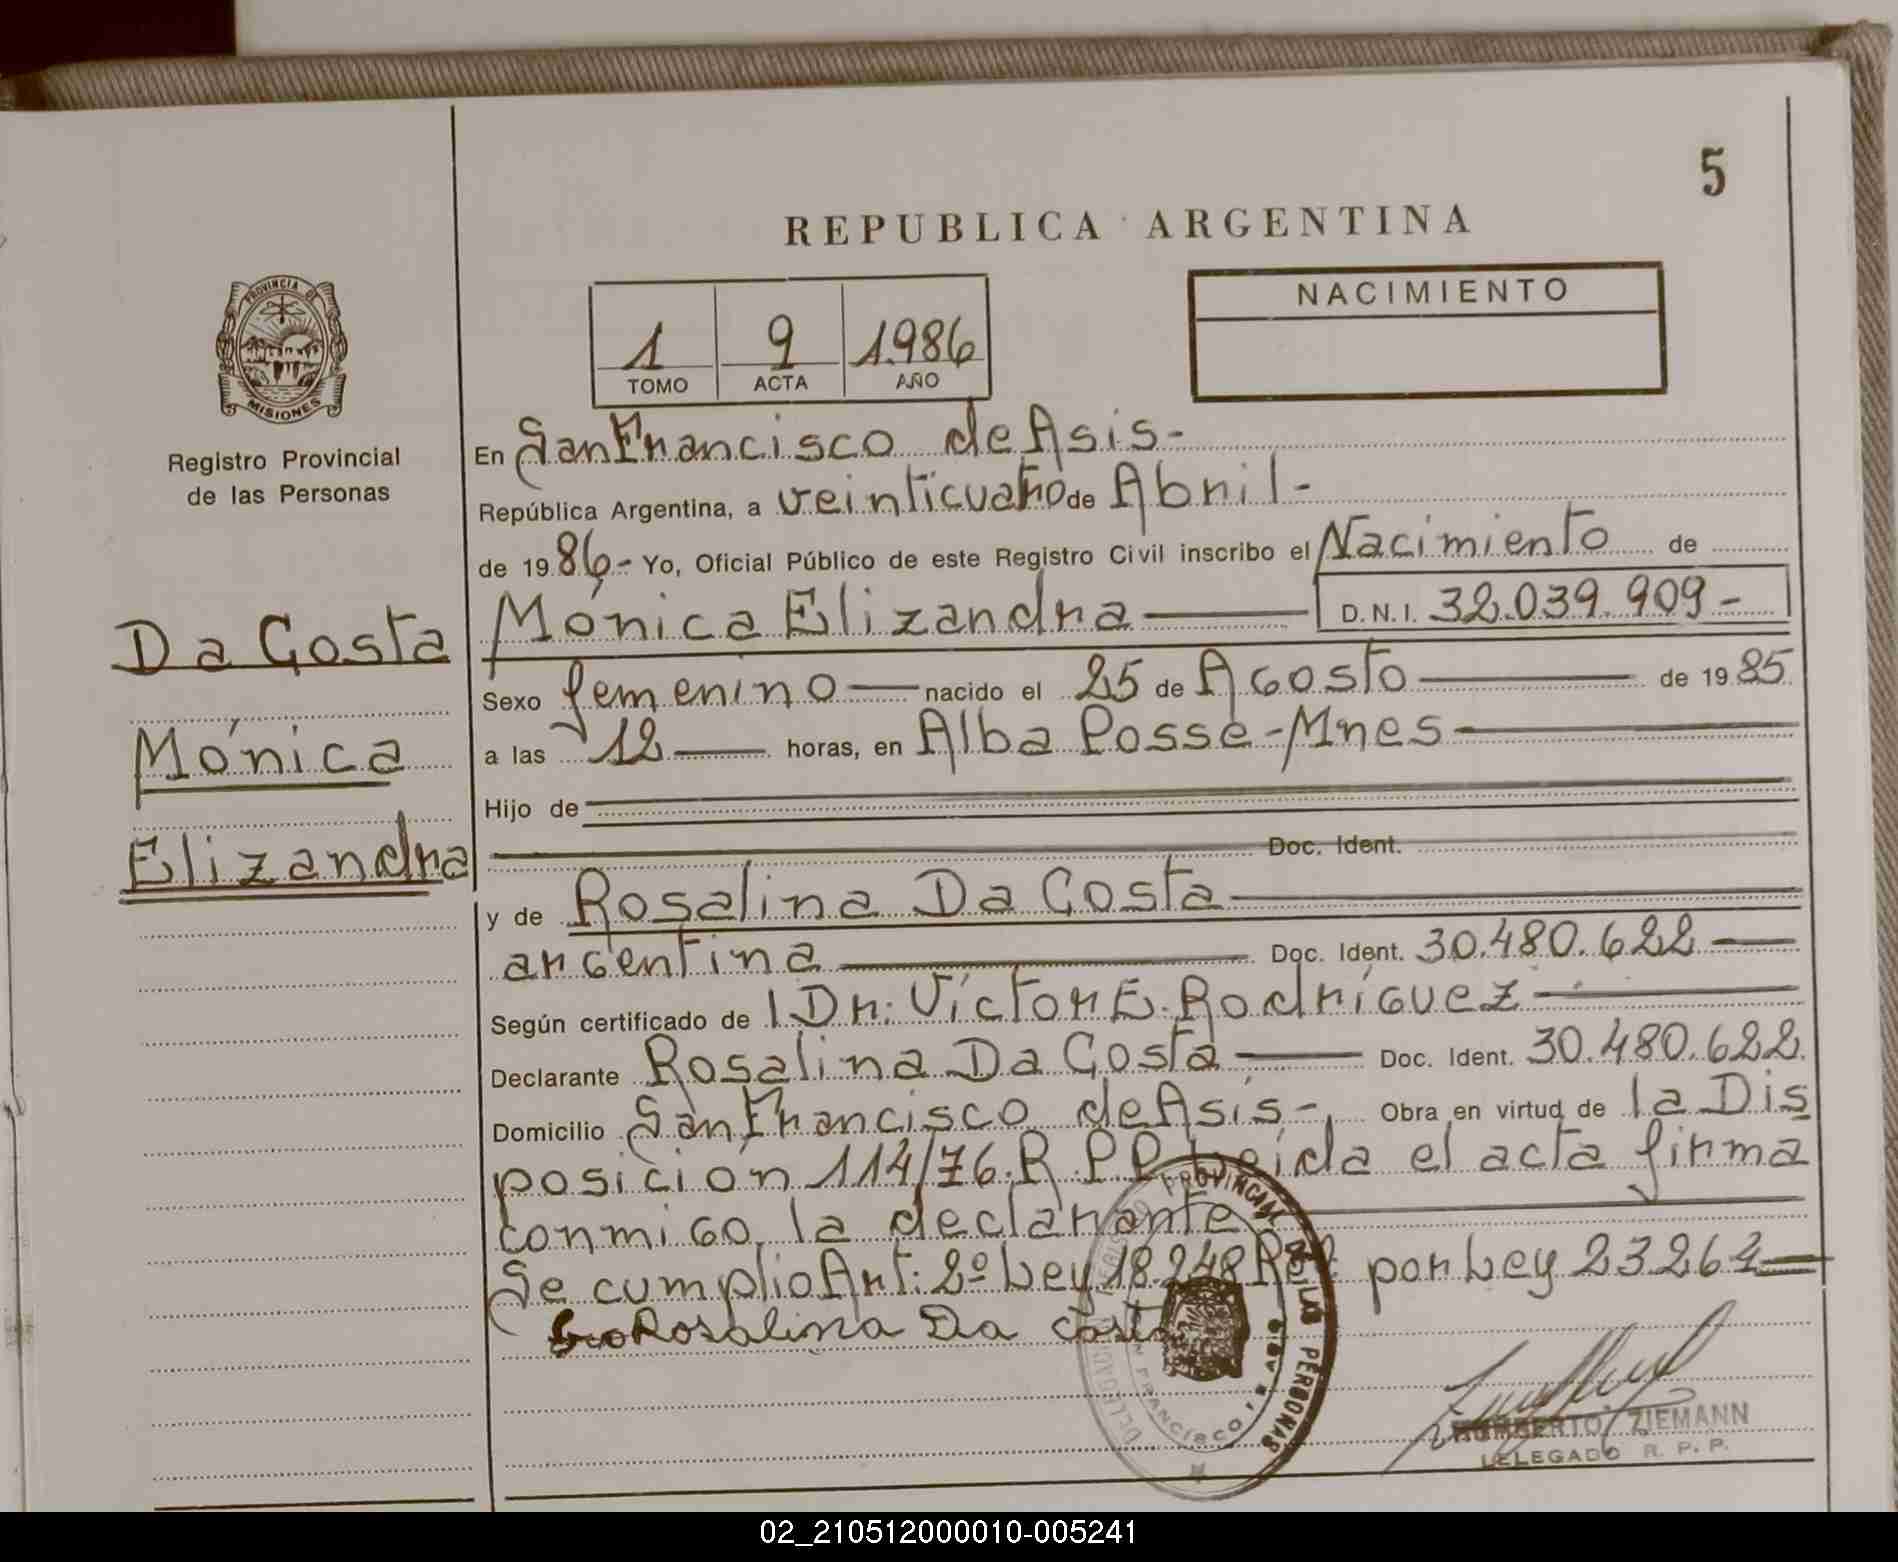 5
REPUBLICA ARGENTINA
PROVINCIA DE
MISIONES
Registro Provincial
de las Personas
1 9 1.986
TOMO ACTA AÑO
NACIMIENTO
En San Francisco de Asis-
República Argentina, a veinticuatro de Abril-
de 19 86- Yo, Oficial Público de este Registro Civil inscribo el Nacimiento de
Mónica Elizandra D.N.I. 32.039.909-
Da Costa
Mónica
Elizandra
Sexo femenino nacido el 25 de Agosto de 19 85
a las 12 horas, en Alba Posse-Mnes
Hijo de
Doc. Ident.
y de Rosalina Da Costa
argentina Doc. Ident. 30.480.622
Según certificado de l Dr: Víctor E. Rodríguez
Declarante Rosalina Da Costa Doc. Ident. 30.480.622.
Domicilio San Francisco de Asís-, Obra en virtud de la Dis
posición 114/76.R.P.P. Leída el acta firma
conmigo, la declarante
Se cumplio Art: 2º Ley 18.248 por Ley 23264
Rosalina Da Costa
PROVINCIAL DE LAS PERSONAS
FRANCISCO
HUMBERTO ZIEMANN
DELEGADO R. P. P.
02_210512000010-005241